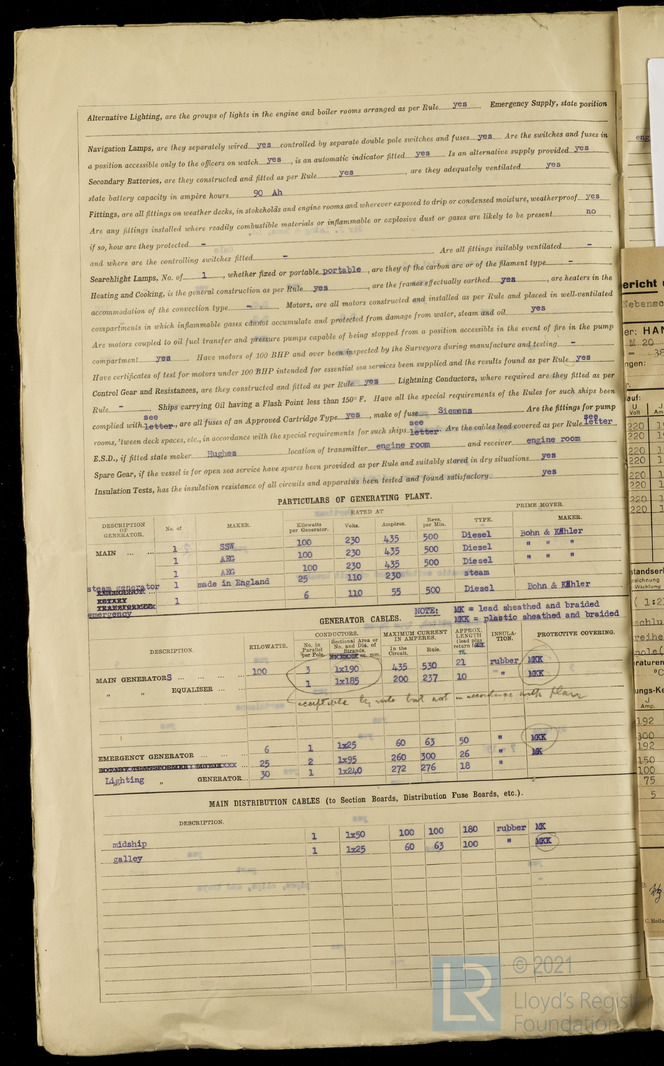 Alternative Lighting, are the groups of lights in the engine and boiler rooms arranged as per Rule yes Emergency Supply, state position
Navigation Lamps, are they separately wired yes controlled by separate double pole switches and fuses yes Are the switches and fuses in
a position accessible only to the officers on watch yes , is an automatic indicator fitted yes Is an alternative supply provided yes
Secondary Batteries, are they constructed and fitted as per Rule yes , are they adequately ventilated yes
state battery capacity in ampere hours 90 Ah
Fittings, are all fittings on weather decks, in stokeholds and engine rooms and wherever exposed to drip or condensed moisture, weatherproof yes
Are any fittings installed where readily combustible materials or inflammable or explosive dust or gases are likely to be present no
if so, how are they protected -
and where are the controlling switches fitted - Are all fittings suitably ventilated -
Searchlight Lamps, No. of 1 , whether fixed or portable portable , are they of the carbon arc or of the filament type -
Heating and Cooking, is the general construction as per Rule yes , are the frames effectually earthed yes , are heaters in the
accommodation of the convection type - Motors, are all motors constructed and installed as per Rule and placed in well-ventilated
compartments in which inflammable gases cannot accumulate and protected from damage from water, steam and oil yes
Are motors coupled to oil fuel transfer and pressure pumps capable of being stopped from a position accessible in the event of fire in the pump
compartment yes Have motors of 100 BHP and over been inspected by the Surveyors during manufacture and testing -
Have certificates of test for motors under 100 BHP intended for essential sea services been supplied and the results found as per Rule yes
Control Gear and Resistances, are they constructed and fitted as per Rule yes Lightning Conductors, where required are they fitted as per
Rule - Ships carrying Oil having a Flash Point less than 150° F. Have all the special requirements of the Rules for such ships been
complied with see letter , are all fuses of an Approved Cartridge Type yes , make of fuse Siemens Are the fittings for pump
rooms, 'tween deck spaces, etc., in accordance with the special requirements for such ships see letter Are the cables lead covered as per Rule see letter
E.S.D., if fitted state maker Hughes location of transmitter engine room and receiver engine room
Spare Gear, if the vessel is for open sea service have spares been provided as per Rule and suitably stored in dry situations yes
Insulation Tests, has the insulation resistance of all circuits and apparatus been tested and found satisfactory yes
PARTICULARS OF GENERATING PLANT.
DESCRIPTION OF GENERATOR. No. of MAKER. RATED AT Kilowatts per Generator. Volts. Ampères. Revs. per Min. PRIME MOVER. TYPE. MAKER.
MAIN ... ... 1 SSW 100 230 435 500 Diesel Bohn & Kähler
1 AEG 100 230 435 500 Diesel " " "
1 AEG 100 230 435 500 Diesel " " "
steam generator 1 made in England 25 110 230 steam
EMERGENCY ...
ROTARY TRANSFORMER
emergency 1 6 110 55 500 Diesel Bohn & Kähler
GENERATOR CABLES.
NOTE: MK = lead sheathed and braided
MKK = plastic sheathed and braided
DESCRIPTION. KILOWATTS. CONDUCTORS. No. in Parallel per Pole. Sectional Area or No. and Dia. of Strands. MAXIMUM CURRENT IN AMPERES. In the Circuit. Rule. APPROX. LENGTH (lead plus return) m INSULATION. PROTECTIVE COVERING.
MAIN GENERATORS ... ... ... 100 3 1x190 435 530 21 rubber MKK
" " EQUALISER ... ... 1 1x185 200 237 10 " " MKK
acceptable by rule but not in accordance with plan
EMERGENCY GENERATOR ... ... ... 6 1 1x25 60 63 50 " MKK
25 2 1x95 260 300 26 " MK
Lighting " GENERATOR 30 1 1x240 272 276 18 "
MAIN DISTRIBUTION CABLES (to Section Boards, Distribution Fuse Boards, etc.).
DESCRIPTION.
midship 1 1x50 100 100 180 rubber MK
galley 1 1x25 60 63 100 " MKK
LR © 2021
Lloyd's Regist
Foundation